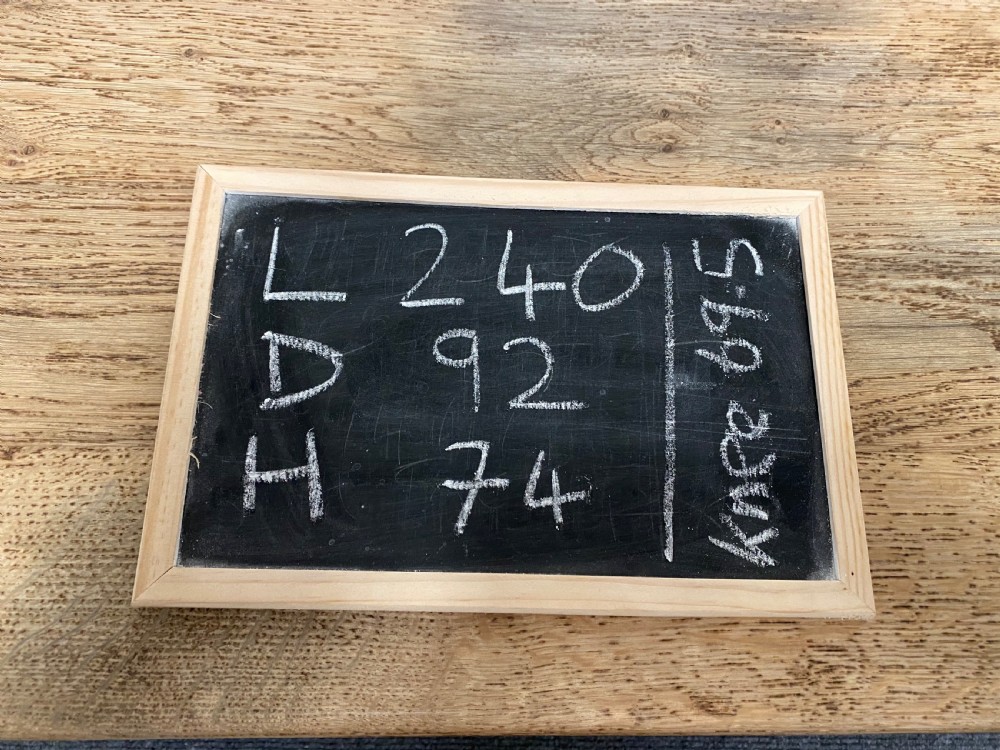 L 240
D 92
H 74
Knee 69.5